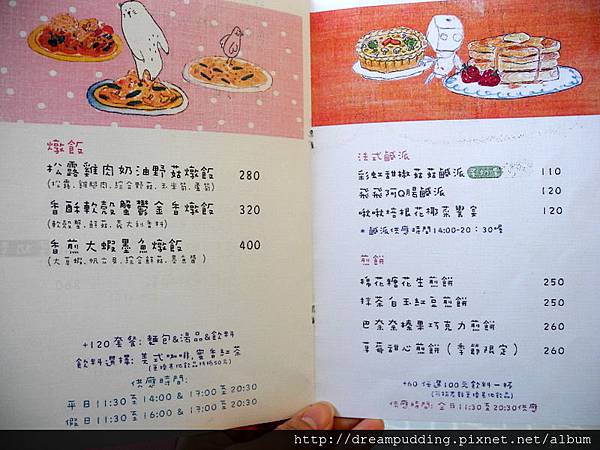 燉飯
松露雞肉奶油野菇燉飯 280
(松露.雞腿肉.綜合野菇.玉米筍.蘆筍)
香酥軟殼蟹鬱金香燉飯 320
(軟殼蟹.鮮菇.義大利香料)
香煎大蝦墨魚燉飯 400
(大草蝦.帆立貝.綜合鮮菇.墨魚醬)
+120 套餐: 麵包&湯品&飲料
飲料選擇: 美式咖啡,蜜香紅茶
供應時間:
平日 11:30 至 14:00 & 17:00 至 20:30
假日 11:30 至 16:00 & 17:00 至 20:30
法式鹹派
彩虹甜椒菇菇鹹派 110
飛飛阿Q腸鹹派 120
啾啾培根花椰菜鹹派 120
*鹹派供應時間14:00-20:30*
煎餅
棉花糖花生煎餅 250
抹茶白玉紅豆煎餅 250
巴奈奈榛果巧克力煎餅 260
草莓甜心煎餅(季節限定) 260
+60 任選100元飲料一杯
供應時間: 全日11:30至20:30供應
http://dreampudding.pixnet.net/album